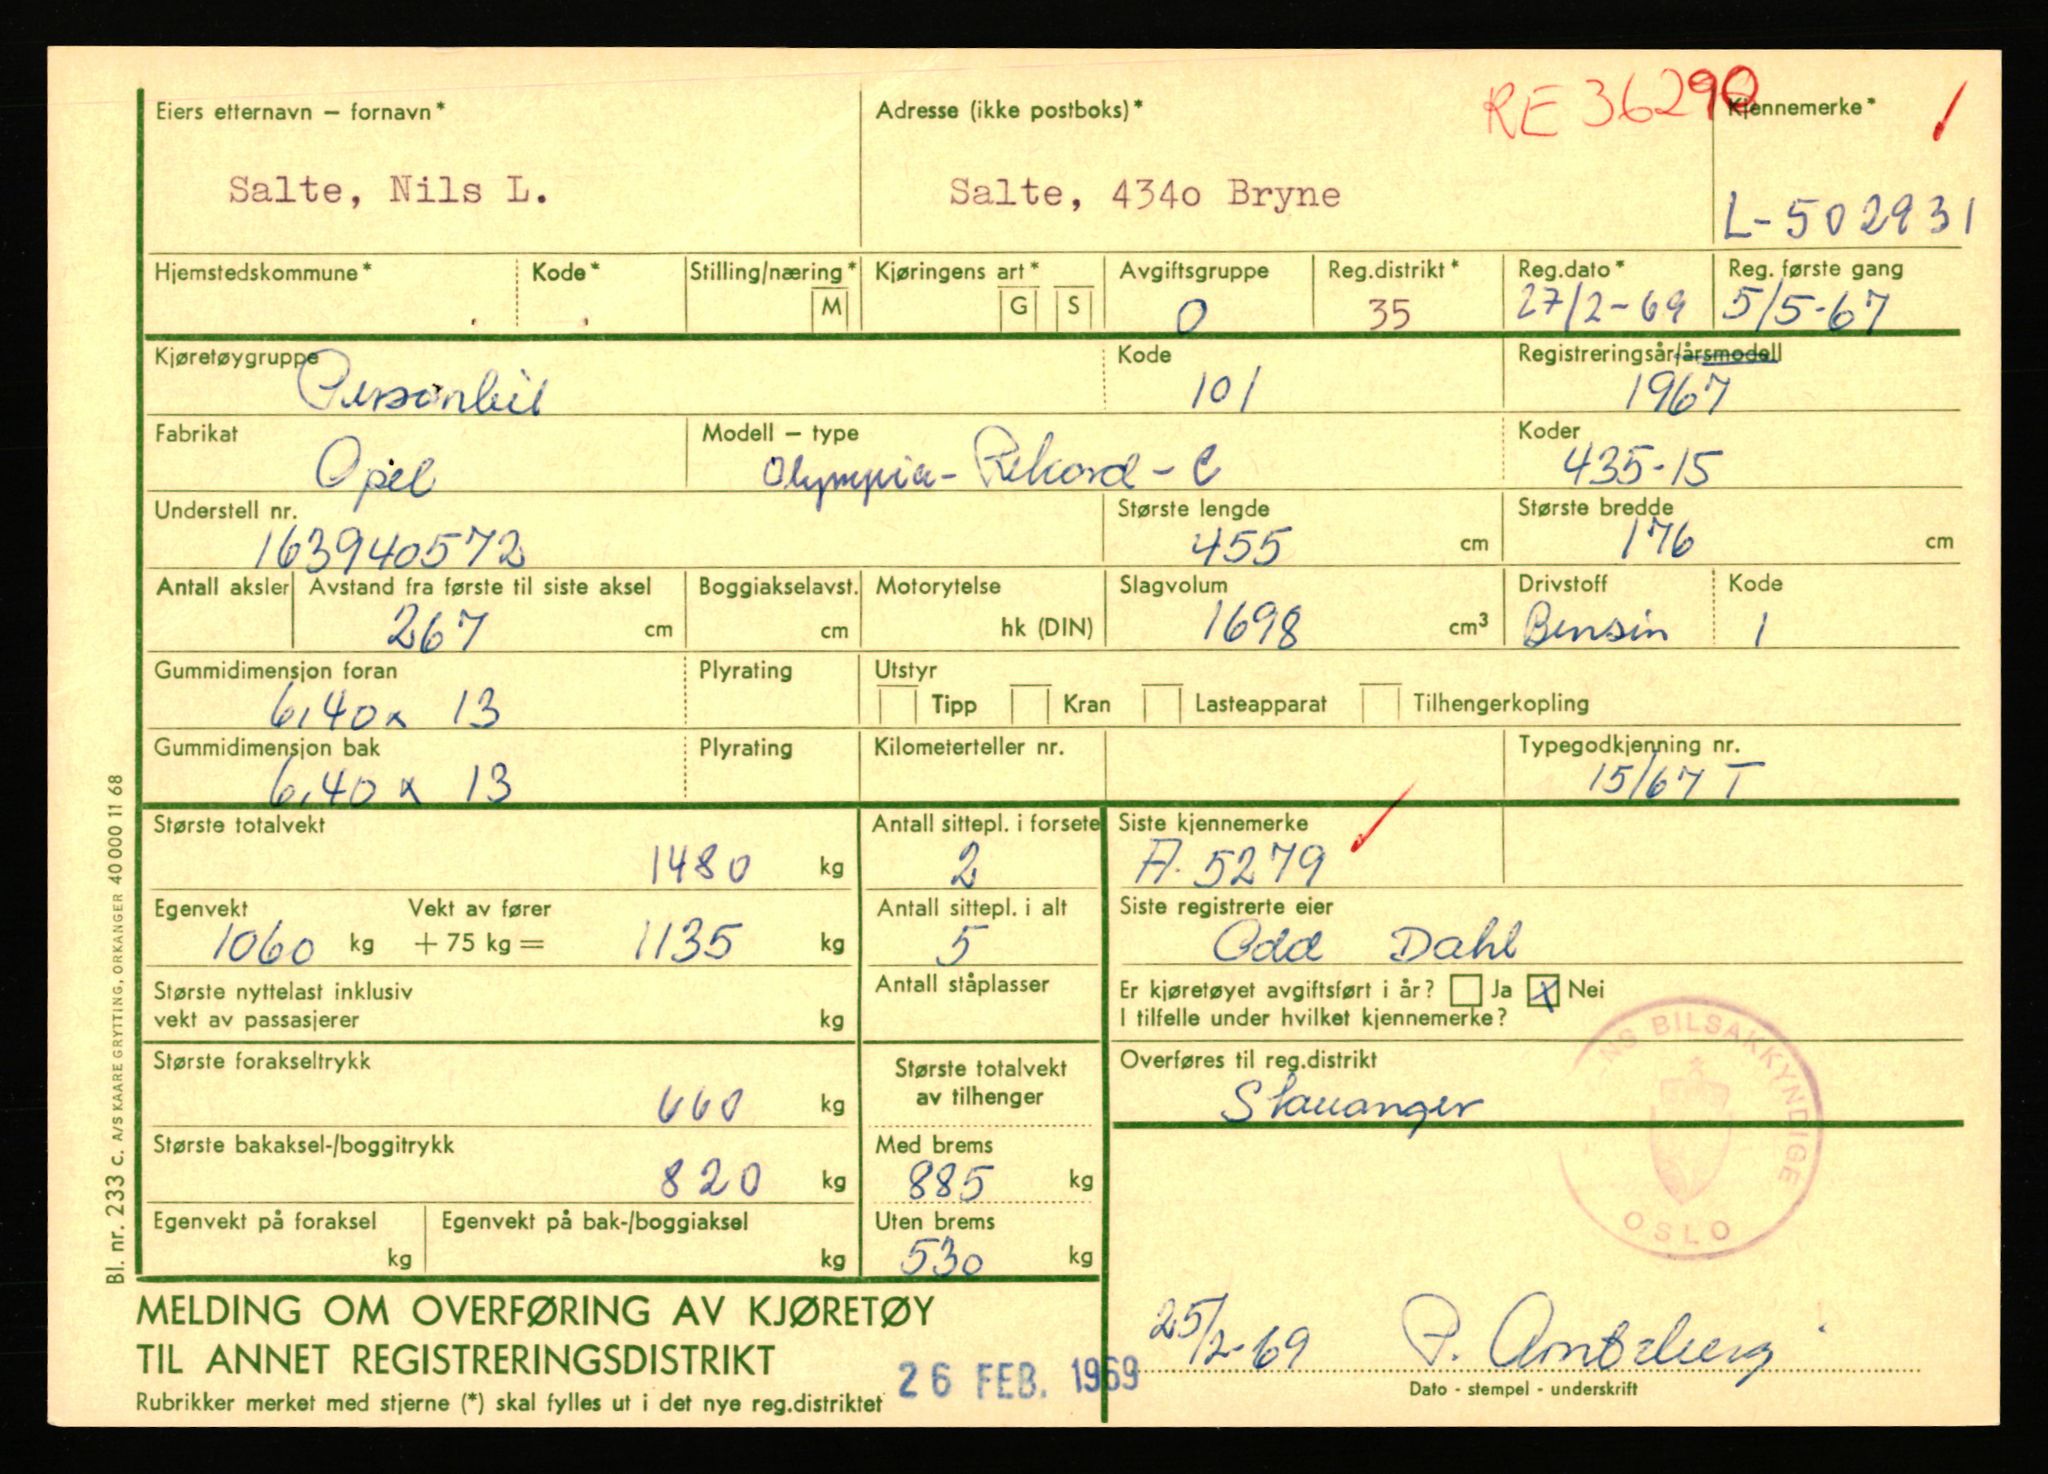 RE 36290
Eiers etternavn – fornavn* Adresse (ikke postboks)* Kjennemerke*
Salte, Nils L. Salte, 434o Bryne L-502931
Hjemstedskommune* Kode* Stilling/næring* Kjøringens art* Avgiftsgruppe Reg.distrikt* Reg.dato* Reg. første gang
M G S 0 35 27/2-69 5/5-67
Kjøretøygruppe Kode Registreringsår/årsmodell
Personbil 101 1967
Fabrikat Modell – type Koder
Opel Olympia - Rekord - C 435-15
Understell nr. Største lengde Største bredde
163940572 455 cm 176 cm
Antall aksler Avstand fra første til siste aksel Boggiakselavst. Motorytelse Slagvolum Drivstoff Kode
267 cm cm hk (DIN) 1698 cm³ Bensin 1
Gummidimensjon foran Plyrating Utstyr
6,40 x 13 Tipp Kran Lasteapparat Tilhengerkopling
Gummidimensjon bak Plyrating Kilometerteller nr. Typegodkjenning nr.
6,40 x 13 15/67 T
Største totalvekt Antall sittepl. i forsete Siste kjennemerke
1480 kg 2 A. 5279
Egenvekt Vekt av fører Antall sittepl. i alt Siste registrerte eier
1060 kg + 75 kg = 1135 kg 5 Odd Dahl
Største nyttelast inklusiv Antall ståplasser Er kjøretøyet avgiftsført i år? Ja X Nei
vekt av passasjerer kg I tilfelle under hvilket kjennemerke?
Største forakseltrykk Største totalvekt Overføres til reg.distrikt
660 kg av tilhenger Stavanger
Største bakaksel-/boggitrykk Med brems
820 kg 885 kg
Egenvekt på foraksel Egenvekt på bak-/boggiaksel Uten brems
kg kg 530 kg
NS BILSAKKYNDIGE
OSLO
MELDING OM OVERFØRING AV KJØRETØY
TIL ANNET REGISTRERINGSDISTRIKT
25/2-69 P.
26 FEB. 1969
Dato - stempel - underskrift
Rubrikker merket med stjerne (*) skal fylles ut i det nye reg.distriktet
Bl. nr. 233 c. A/S KAARE GRYTTING, ORKANGER 40 000 11 68